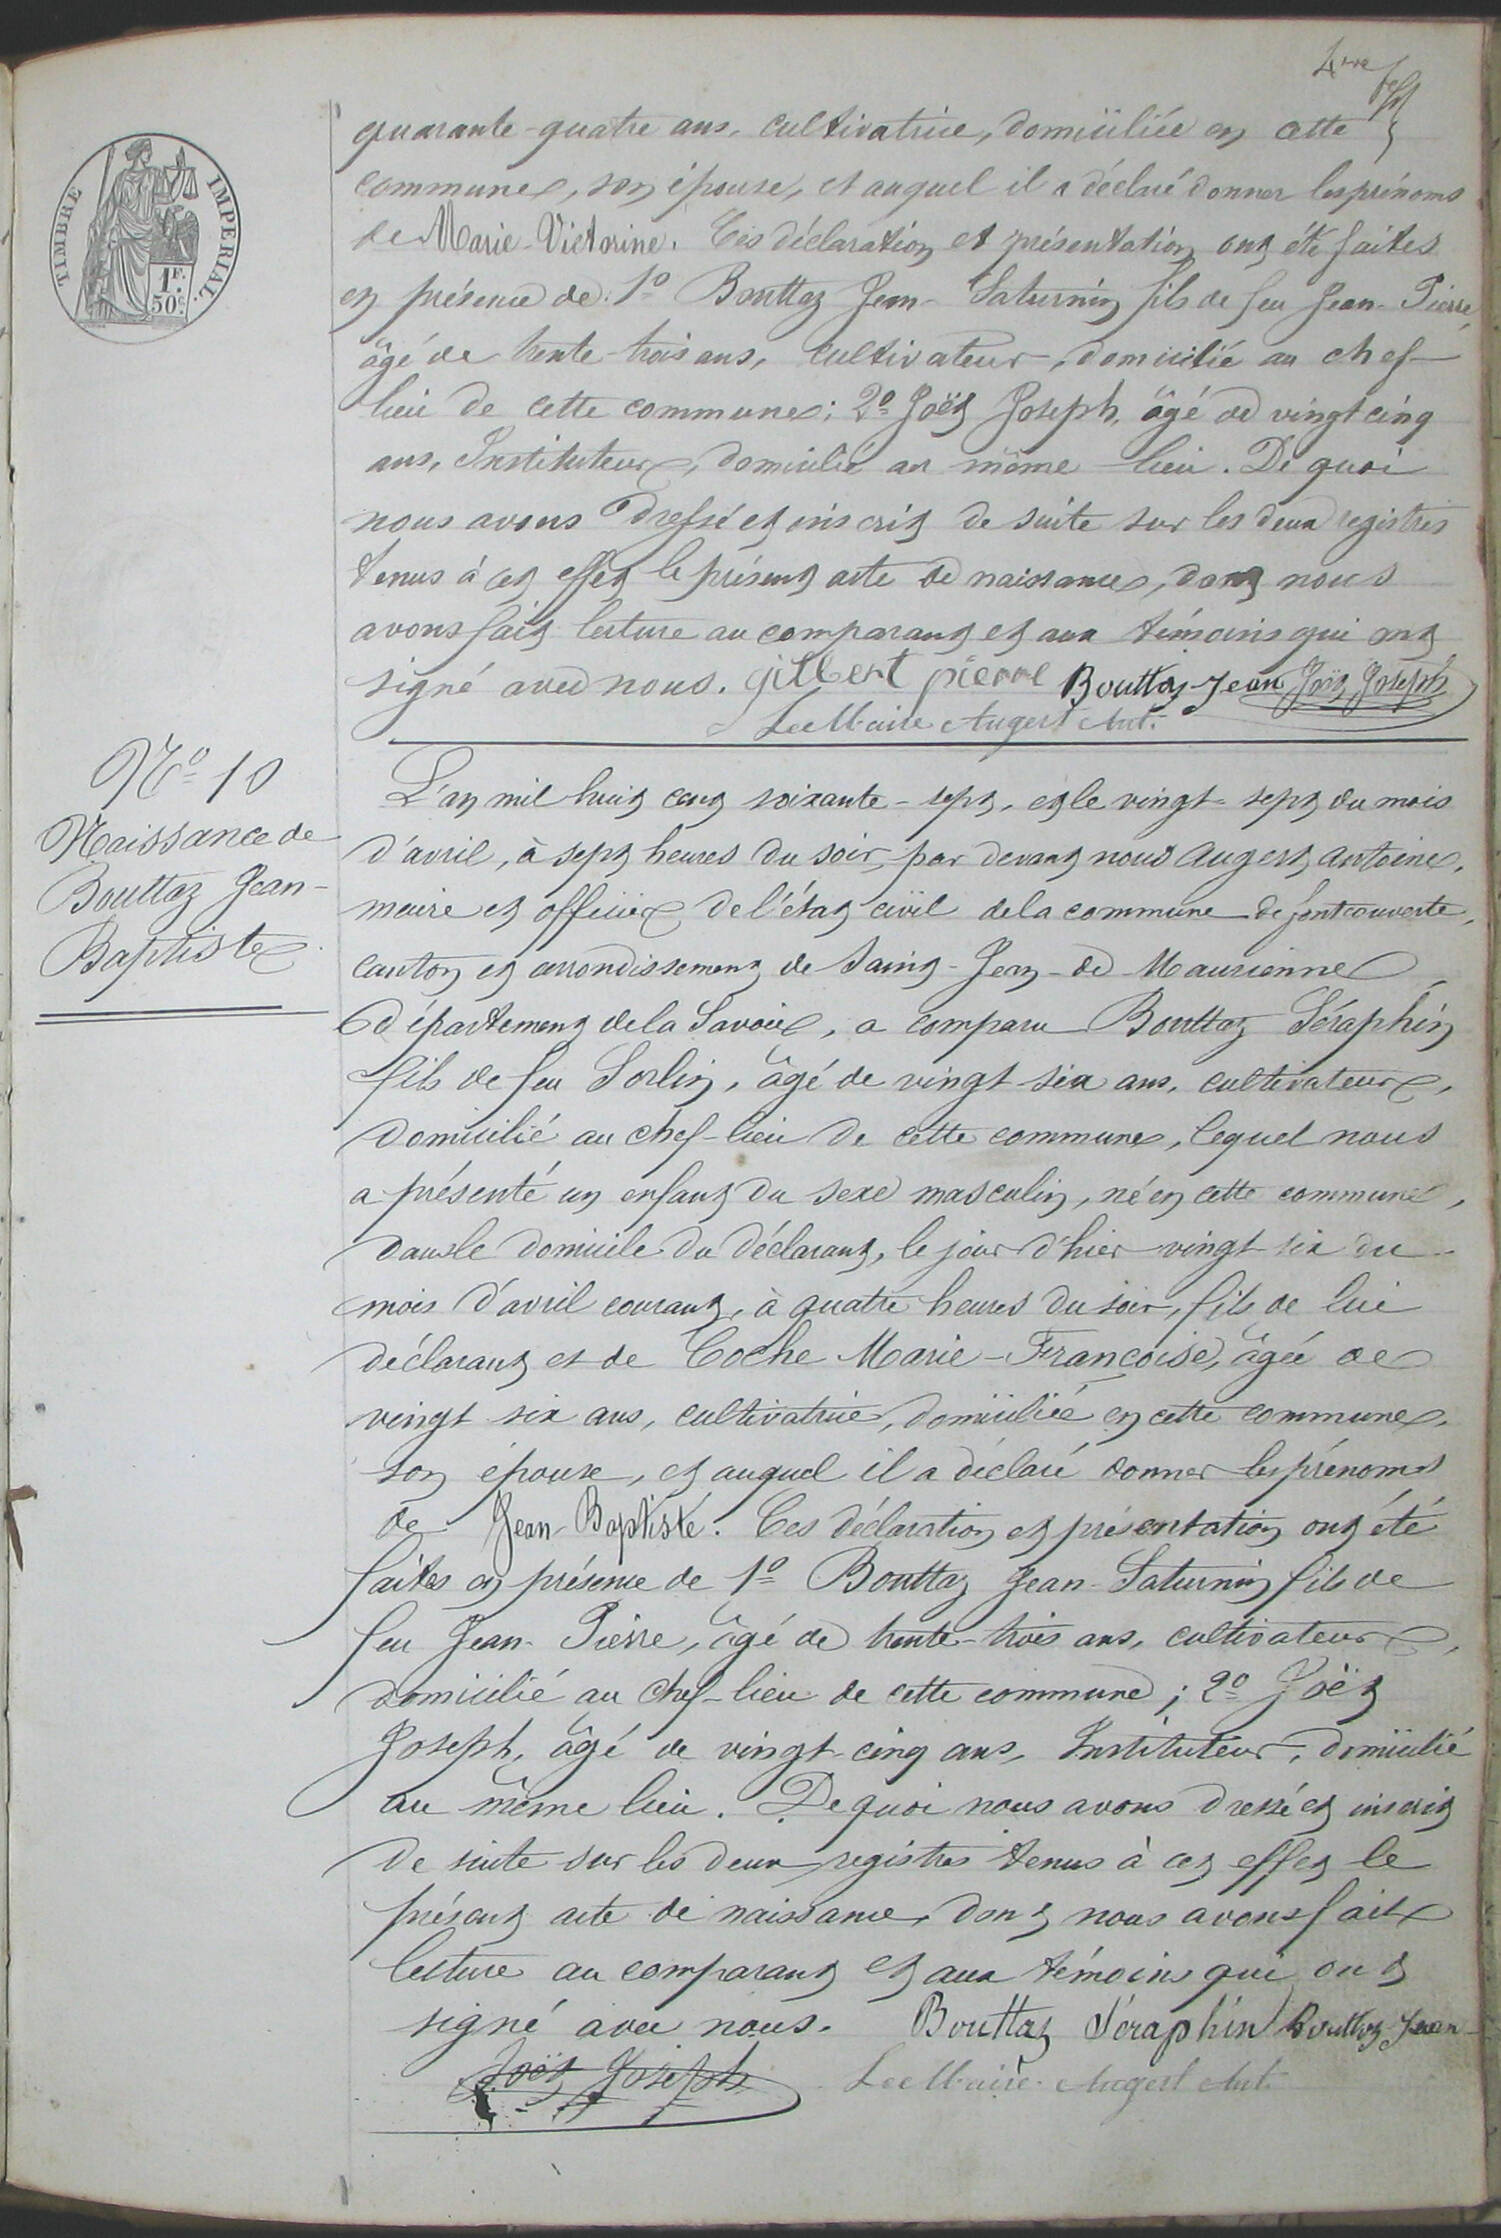 4me
TIMBRE IMPERIAL.
1F.
50c.
quarante-quatre ans, cultivatrice, domiciliée en cette
commune, son épouse, et auquel il a déclaré donner les prénoms
de Marie-Victorine. Ces déclaration et présentation ont été faites
en présence de: 1º Bouttaz Jean-Saturnin fils de feu Jean-Pierre,
âgé de trente-trois ans, cultivateur, domicilié au chef-
lieu de cette commune; 2º Joët Joseph, âgé de vingt cinq
ans, Instituteur, domicilié au même lieu. De quoi
nous avons dressé et inscrit de suite sur les deux registres
tenus à cet effet le présent acte de naissance, dont nous
avons fait lecture au comparant et aux témoins qui ont
signé avec nous. gilbert pierre Bouttaz Jean Joët Joseph
Le Maire Augert Ant.
Nº 10
Naissance de
Bouttaz Jean-
Baptiste
L'an mil huit cent soixante-sept, et le vingt-sept du mois
d'avril, à sept heures du soir, par devant nous Augert Antoine,
maire et officier de l'état civil de la commune de fontcouverte,
canton et arrondissement de Saint-Jean-de-Maurienne
département de la Savoie, a comparu Bouttaz Séraphin
fils de feu Sorlin, âgé de vingt-six ans, cultivateur,
domicilié au chef-lieu de cette commune, lequel nous
a présenté un enfant du sexe masculin, né en cette commune,
dans le domicile du déclarant, le jour d'hier vingt-six du
mois d'avril courant, à quatre heures du soir, fils de lui
déclarant et de Coche Marie-Françoise, âgée de
vingt six ans, cultivatrice, domiciliée en cette commune,
son épouse, et auquel il a déclaré donner les prénoms
de Jean-Baptiste. Ces déclaration et présentation ont été
faites en présence de 1º Bouttaz Jean-Saturnin fils de
feu Jean-Pierre, âgé de trente-trois ans, cultivateur,
domicilié au chef-lieu de cette commune; 2º Joët
Joseph, âgé de vingt-cinq ans, Instituteur, domicilié
au même lieu. De quoi nous avons dressé et inscrit
de suite sur les deux registres tenus à cet effet le
présent acte de naissance, dont nous avons fait
lecture au comparant et aux témoins qui ont
signé avec nous. Bouttaz Séraphin Bouttaz Jean
Joët Joseph Le Maire Augert Ant.